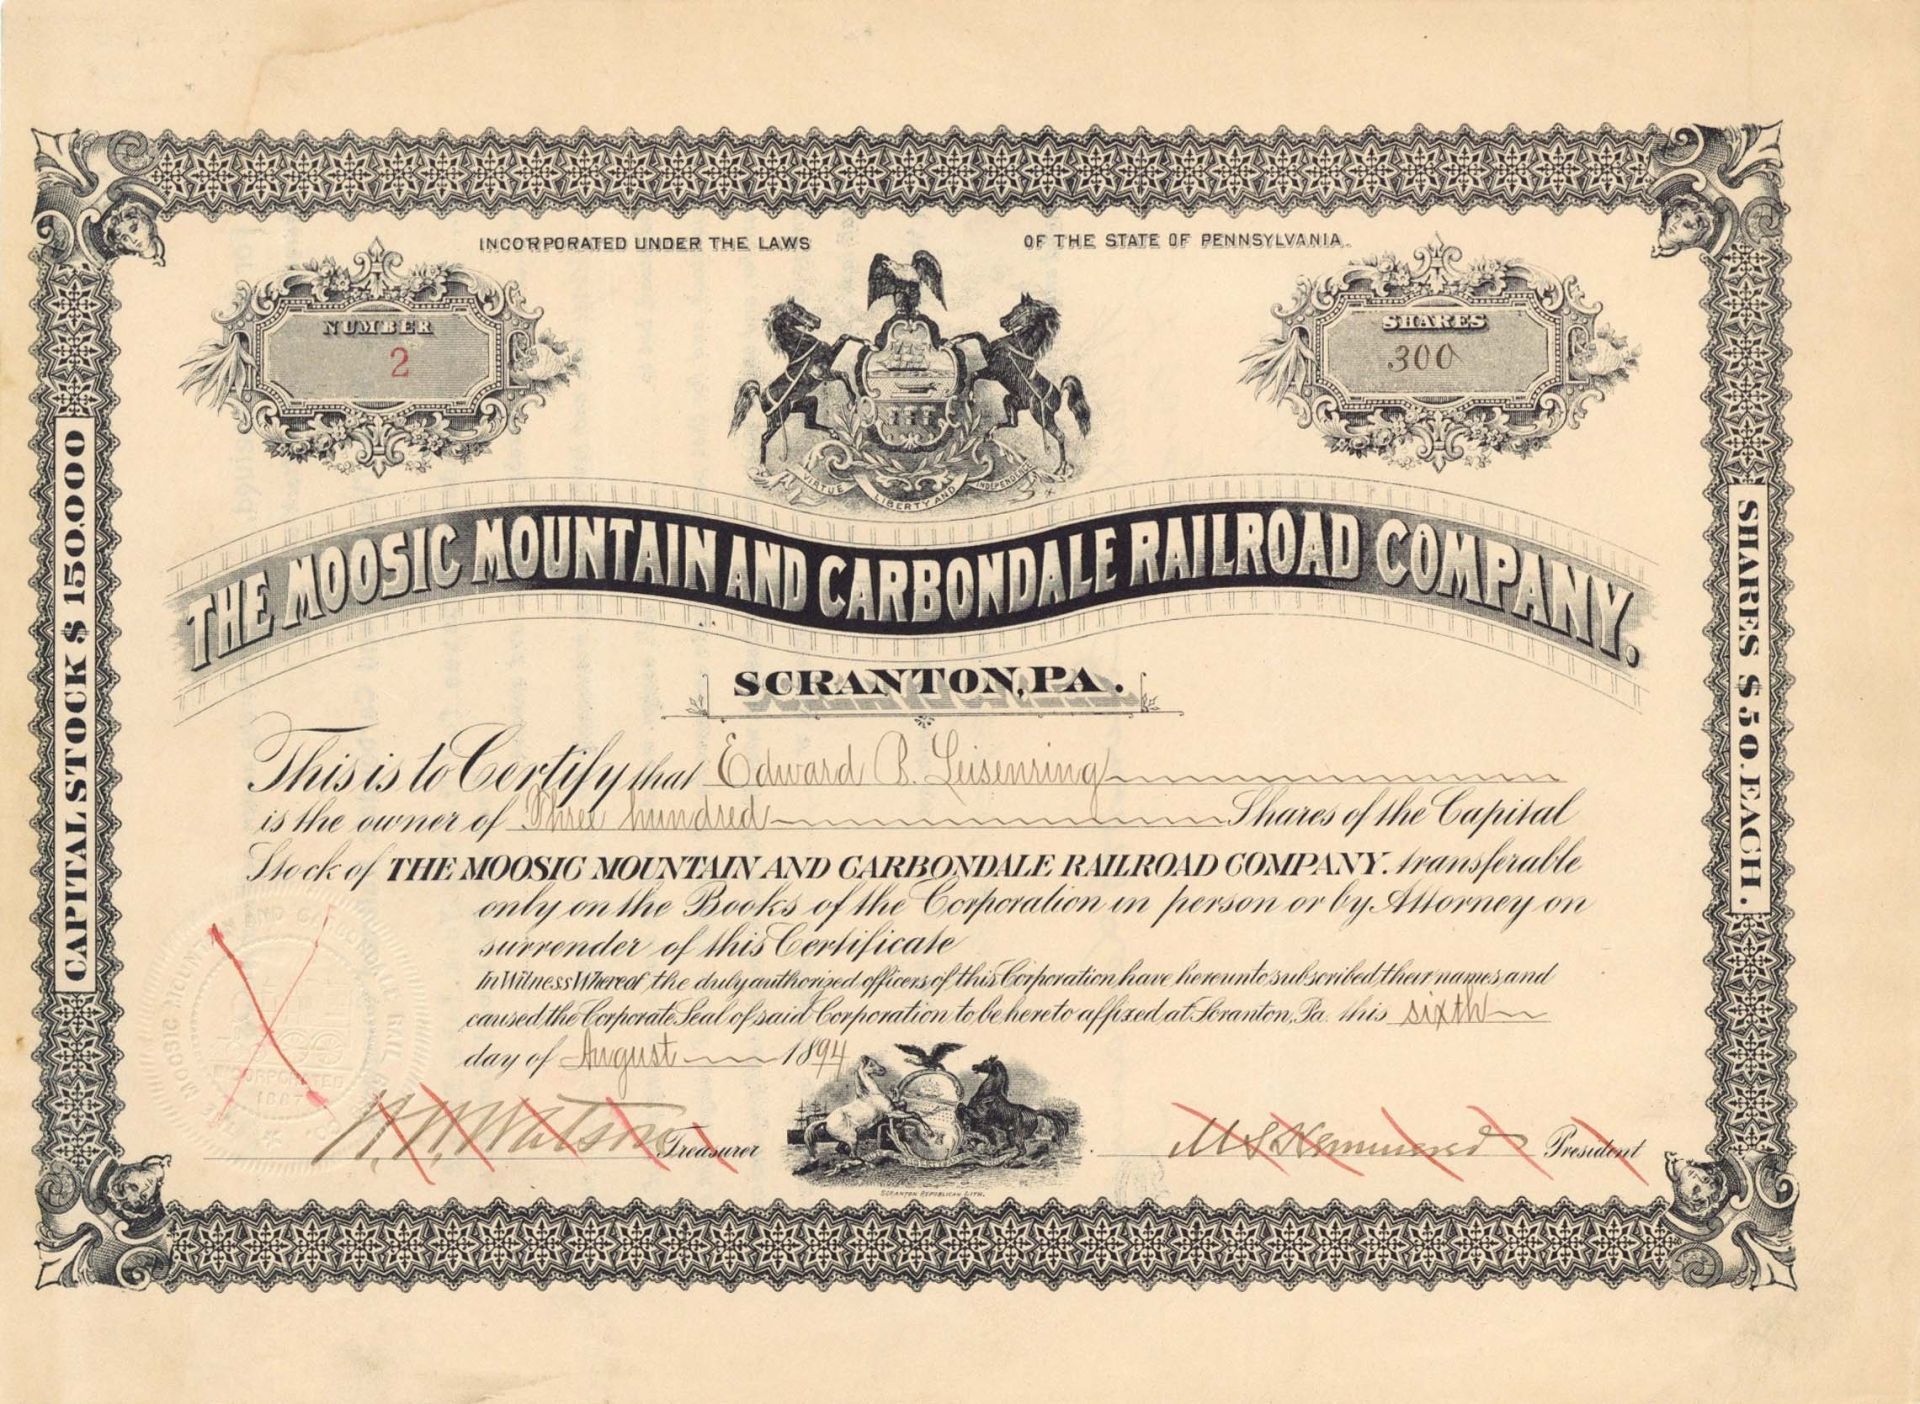 INCORPORATED UNDER THE LAWS OF THE STATE OF PENNSYLVANIA.
NUMBER
2
SHARES
300
VIRTUE LIBERTY AND INDEPENDENCE
THE MOOSIC MOUNTAIN AND CARBONDALE RAILROAD COMPANY.
SCRANTON, PA.
CAPITAL STOCK $ 150.000
SHARES $ 50. EACH.
This is to Certify that Edward B. Leisenring
is the owner of Three hundred Shares of the Capital
Stock of THE MOOSIC MOUNTAIN AND CARBONDALE RAILROAD COMPANY. transferable
only on the Books of the Corporation in person or by Attorney on
surrender of this Certificate
In Witness Whereof, the duly authorized officers of this Corporation, have hereunto subscribed their names, and
caused the Corporate Seal of said Corporation to be hereto affixed, at Scranton, Pa. this sixth
day of August 1894
MOOSIC MOUNTAIN AND CARBONDALE RAIL
INCORPORATED
1887
CO.
Watson Treasurer
President
SCRANTON REPUBLICAN LITH.